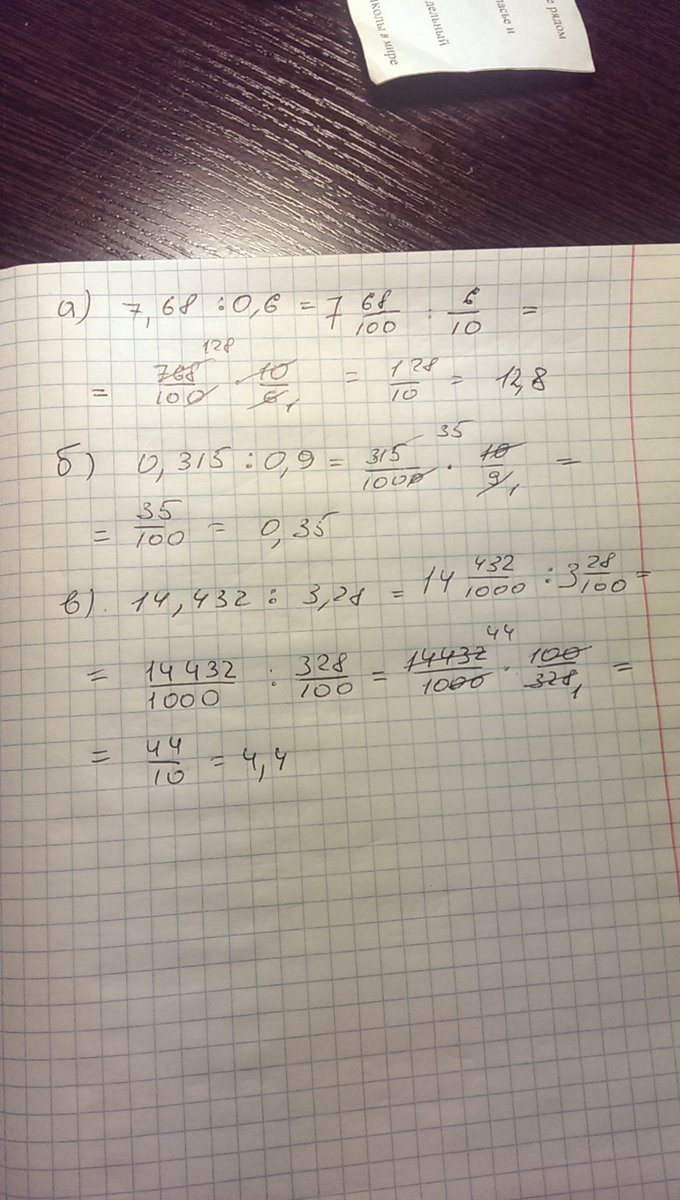 е рядом
ласье и
дельный
школы в мире
а) 7,68 : 0,6 = 7 68/100 : 6/10 =
= 768/100 · 10/6 = 128/10 = 12,8
128
1
б) 0,315 : 0,9 = 315/1000 · 10/9 =
35
1
= 35/100 = 0,35
в). 14,432 : 3,28 = 14 432/1000 : 3 28/100 =
= 14432/1000 : 328/100 = 14432/1000 · 100/328 =
44
1
= 44/10 = 4,4